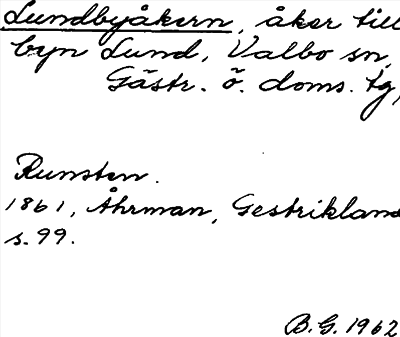 Lundbyåkern, åker till
byn Lund, Valbo sn,
Gästr. ö. doms. tg,
Runsten.
1861, Åhrman, Gestrikland
s. 99.
B.G. 1962